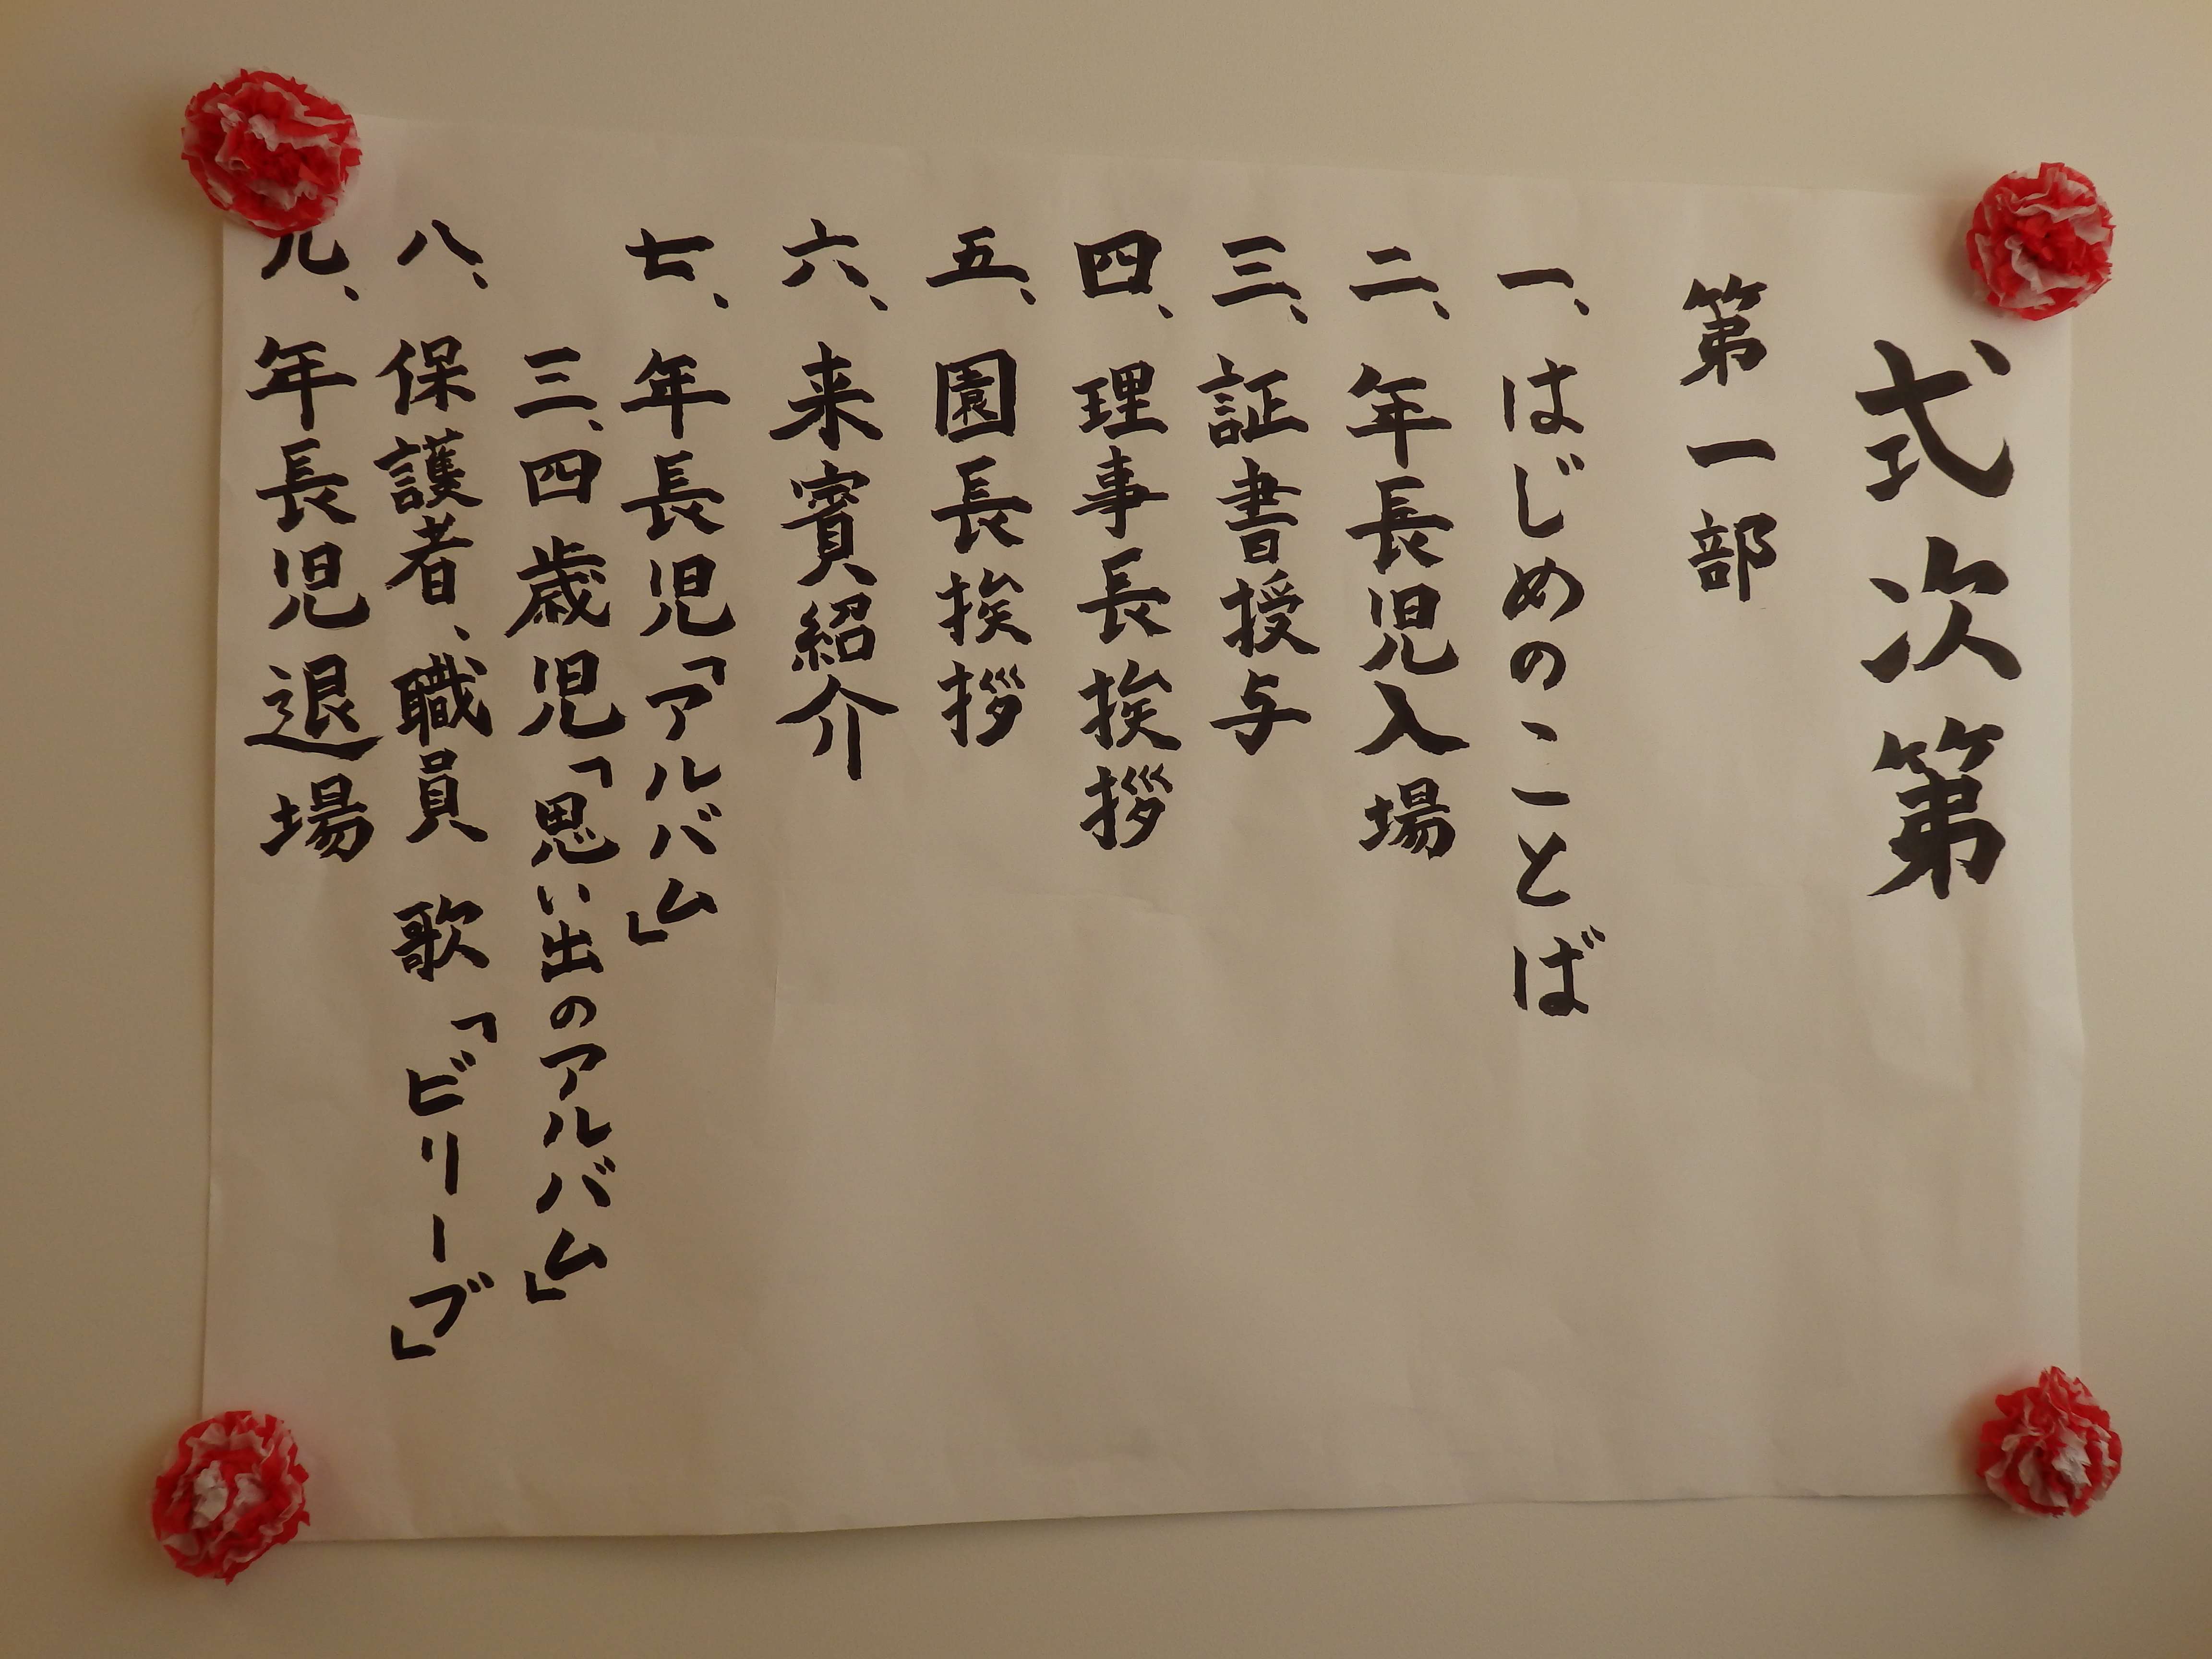 式次第
第一部
一、はじめのことば
二、年長児入場
三、証書授与
四、理事長挨拶
五、園長挨拶
六、来賓紹介
七、年長児「アルバム」
三、四歳児「思い出のアルバム」
八、保護者、職員 歌「ビリーブ」
九、年長児退場